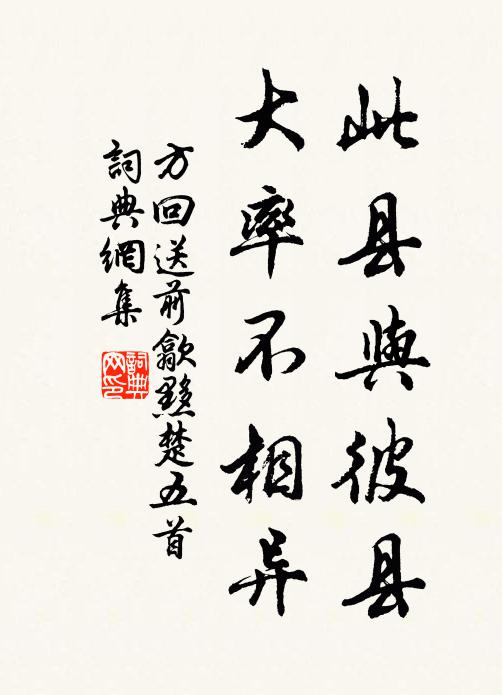 此县與彼县
大率不相异
方回送前歙黟楚五首
詞典網集
詞典网印